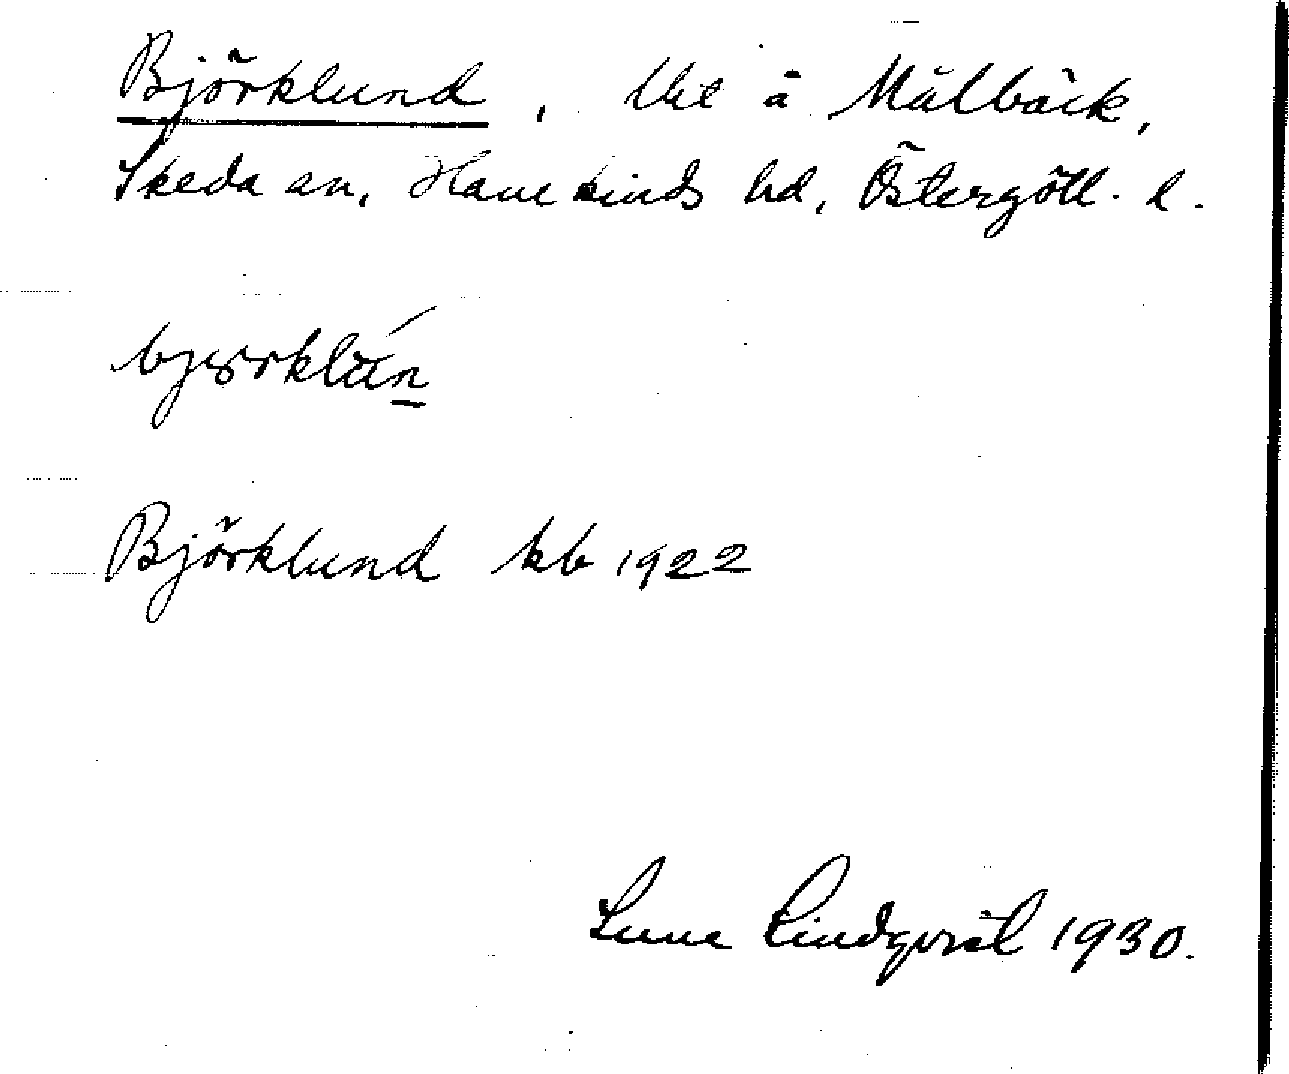 Björklund, lht å Målbäck,
Skeda sn, Hanekinds hd, Östergötl. l.
Björklund kb 1922
Sune Lindqvist 1930.